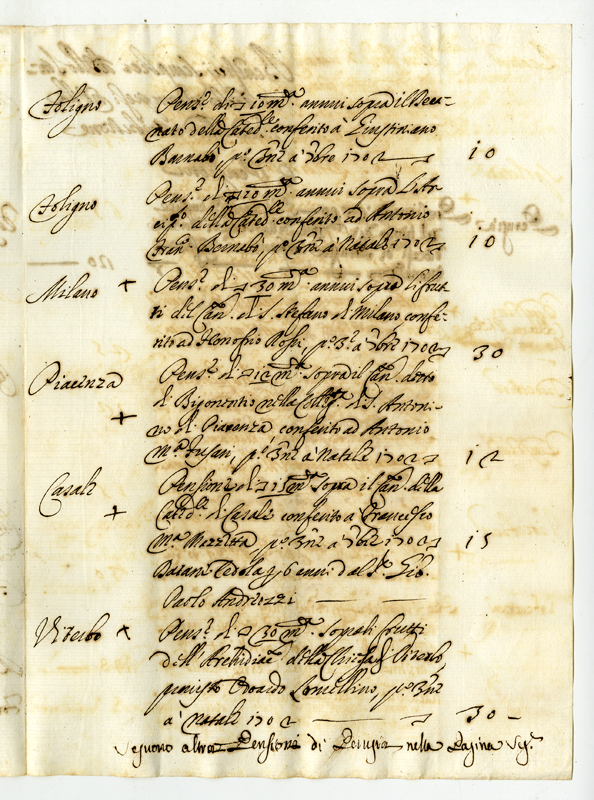 Foligno Pens.e di 10 m.ta annui sopra il Decanato della Cated.le conferito à Giustiniano
Barnabò p.o 3m.e à 9bre 1702 10
Foligno Pens.e di 10 m.ta annui sopra
della Cated.le conferito ad Antonio
Fran.o Barnabò, p.o 3m.e à Natale 1702 10
Milano + Pens.e di 30 m.ta annui sopra li frut
ti del Can.to di S. Stefano di Milano confe-
rito ad Honofrio Rossi, p.o 3.e à 9bre 1702 30
Piacenza Pens.e di 12 m.ta sopra il Can.to detto
+ di Bigontio nella Colleg.ta di S. Antoni-
no di Piacenza conferito ad Antonio
M.a Fusari, p.o 3m.e à Natale 1702 12
Casale Pensione di 15 m.ta sopra il Can.to della
+ Cated.le di Casale conferito à Francesco
M.a Mazzetta p.o 3m.e à 9bre 1702 15
Cedola 6 anni dal S.r Gio.
Paolo Andriozzi
Viterbo + Pens.e di 30 m.ta sopra li frutti
dell' Archidiac.to della Chiesa di Viterbo
Odoardo Lomellino, p.o 3m.e
à Natale 1702 30
Seguono altre Pensioni di Perugia nella Pagina Seg.te